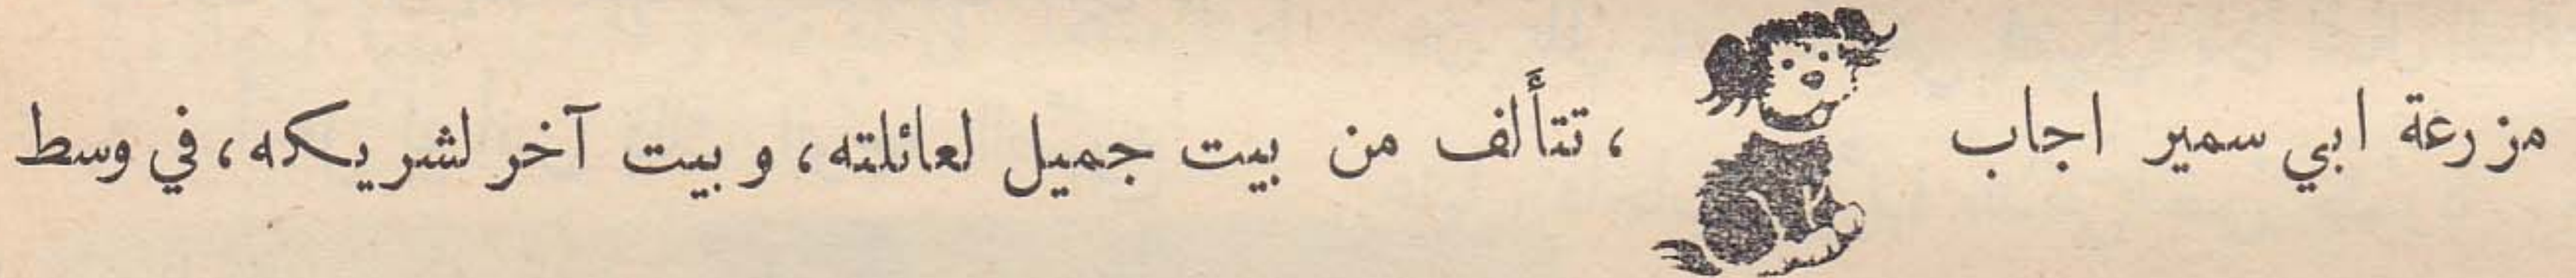 مزرعة ابي سمير اجاب ، تتأَلف من بيت جميل لعائلته، و بيت آخر لشريكه، في وسط